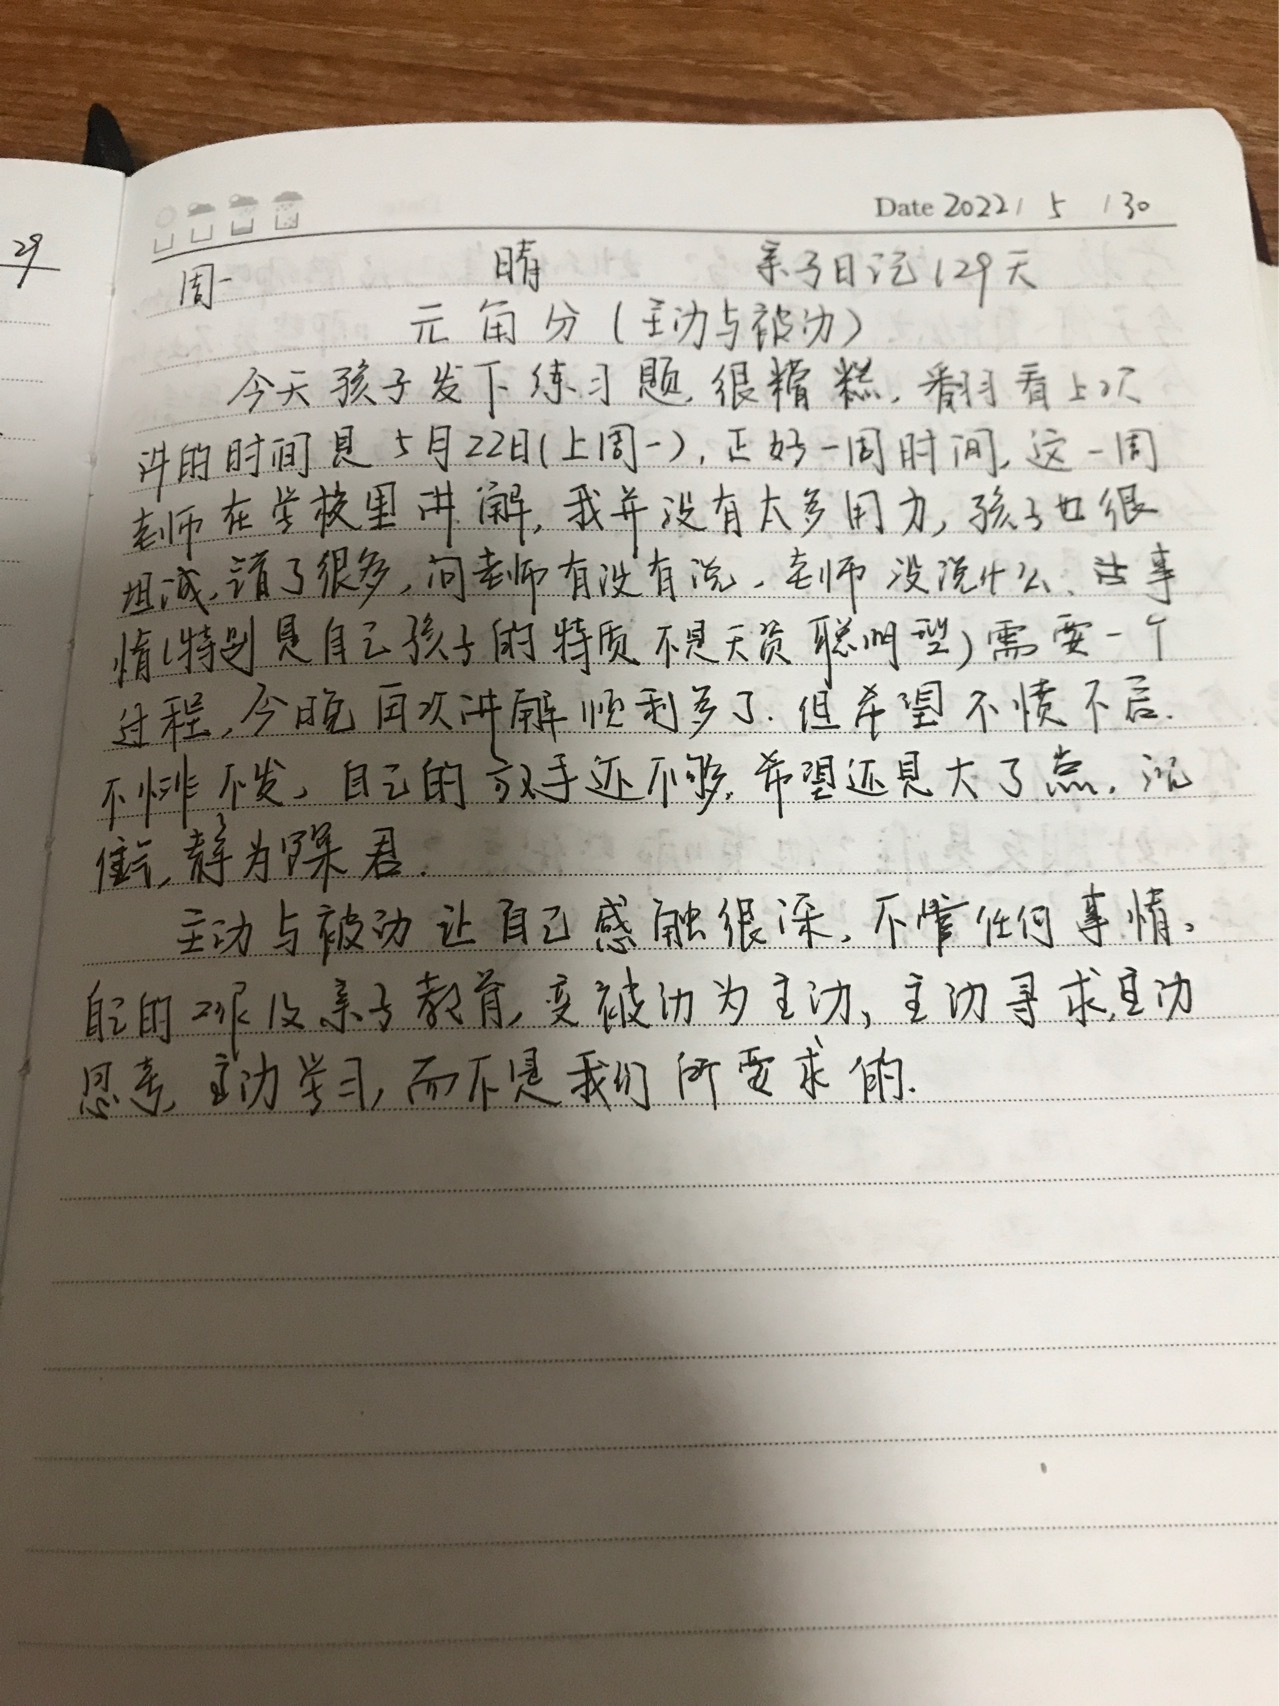 29
Date 2022 / 5 / 30
周一 晴 亲子日记129天
元角分(主动与被动)
今天孩子发下练习题,很糟糕,翻看上次
讲的时间是5月22日(上周一),正好一周时间,这一周
老师在学校里讲解,我并没有太多用力,孩子也很
坦诚,错了很多,问老师有没有说,老师没说什么,
情(特别是自己孩子的特质不是天资聪明型)需要一个
过程,今晚再次讲解顺利多了.但希望不愤不启.
不悱不发,自己的放手还不够,希望还是大了点,沉
住气,静为躁君.
主动与被动让自己感触很深,不管任何事情,
自己的 及亲子教育,变被动为主动,主动寻求,主动
思考,主动学习,而不是我们所要求的.